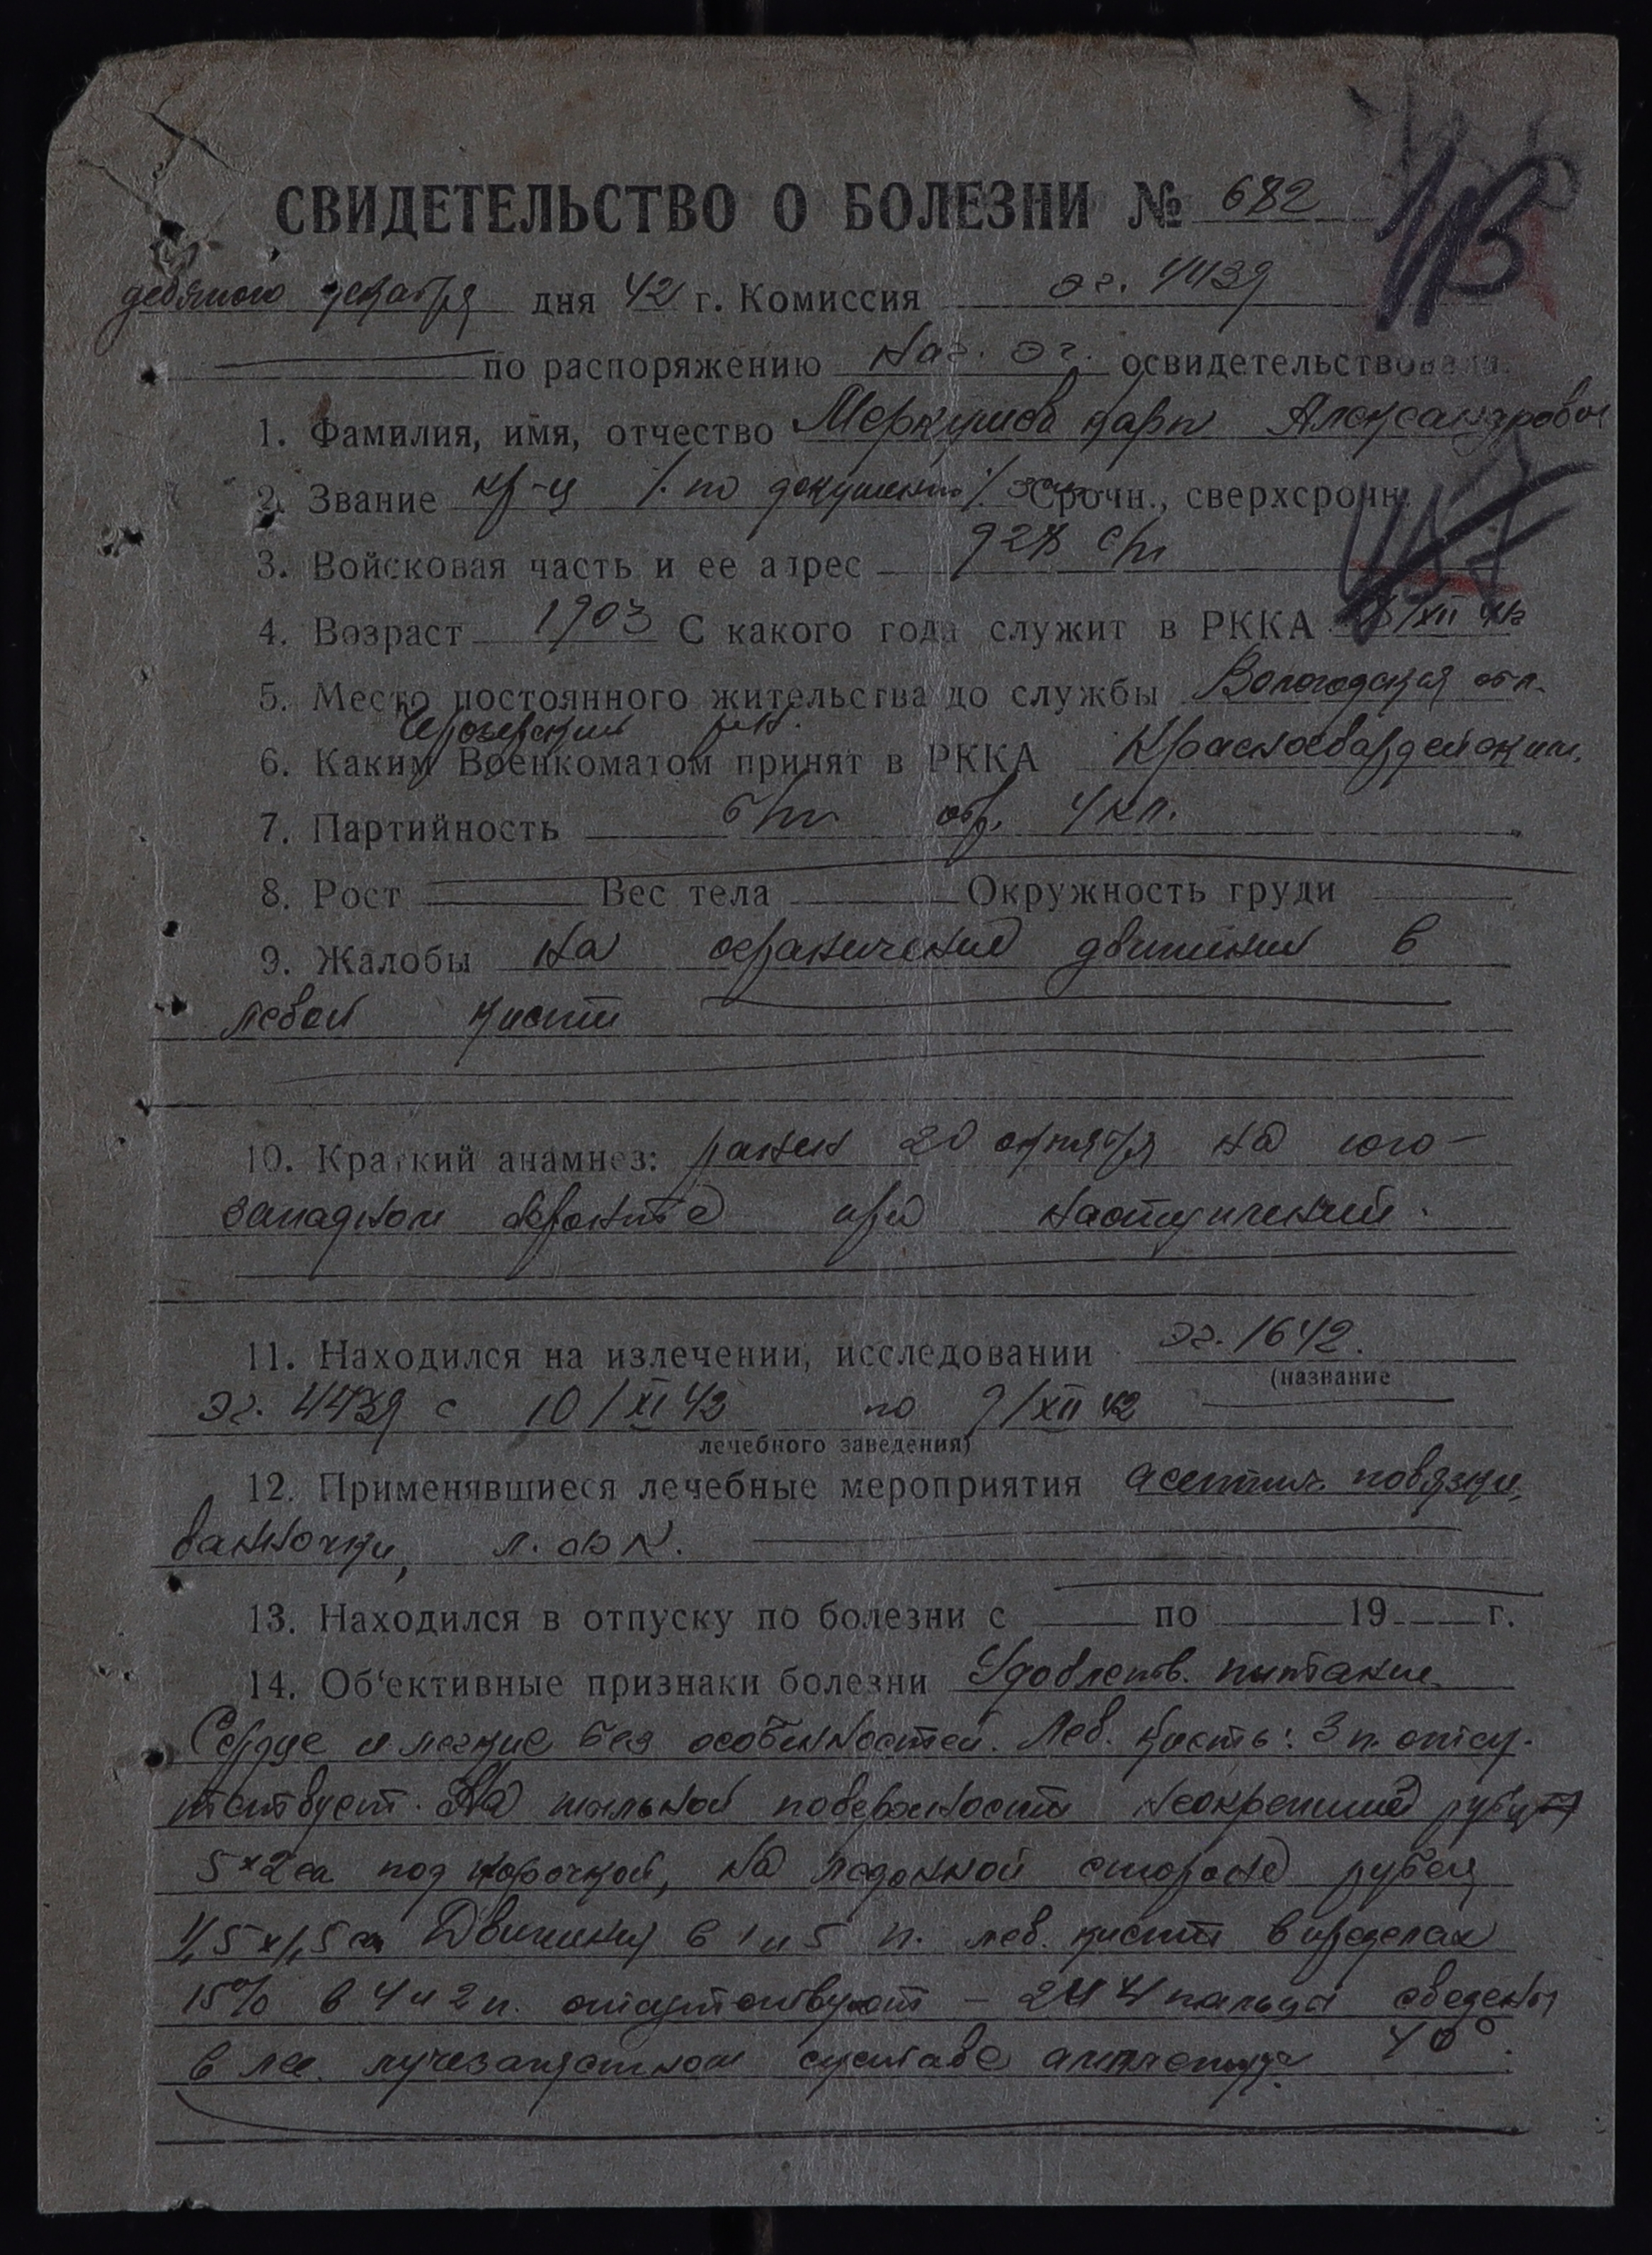 СВИДЕТЕЛЬСТВО О БОЛЕЗНИ № 682
девятого декабря дня 42 г. Комиссия эг. 4439
по распоряжению Наг. эг. освидетельствовала
1. Фамилия, имя, отчество Меркушева Карп Александрович
2. Звание кр-ц /по документ/ Срочн., сверхсрочн.
3. Войсковая часть и ее адрес 928 сп
4. Возраст 1903 С какого года служит в РККА /XII
5. Место постоянного жительства до службы Вологодская обл.
р-н.
6. Каким Военкоматом принят в РККА Красногвардейским.
7. Партийность б/п обр. 4 кл.
8. Рост Вес тела Окружность груди
9. Жалобы на ограничение движении в
левой кисти
10. Краткий анамнез: ранен 20 октября на юго-
западном фронте при наступлении.
11. Находился на излечении, исследовании эг. 1642.
(название
эг. 4439 с 10/XI 42 по 9/XII 42
лечебного заведения)
12. Применявшиеся лечебные мероприятия асептич. повязки,
ванночки, л. ф к.
13. Находился в отпуску по болезни с по 19 г.
14. Об'ективные признаки болезни Удовлетв. питание
Сердце и легкие без особенностей. Лев. кисть: 3 п. отсу-
тствует. На тыльной поверхности неокрепший рубец
5×2 см под корочкой, на ладонной стороне рубец
1,5×1,5 см Движения в 1 и 5 п. лев. кисти в пределах
15% в 4 и 2 п. отсутствуют - 2 и 4 пальца сведены
в лучезапястном суставе амплитуда 40°.